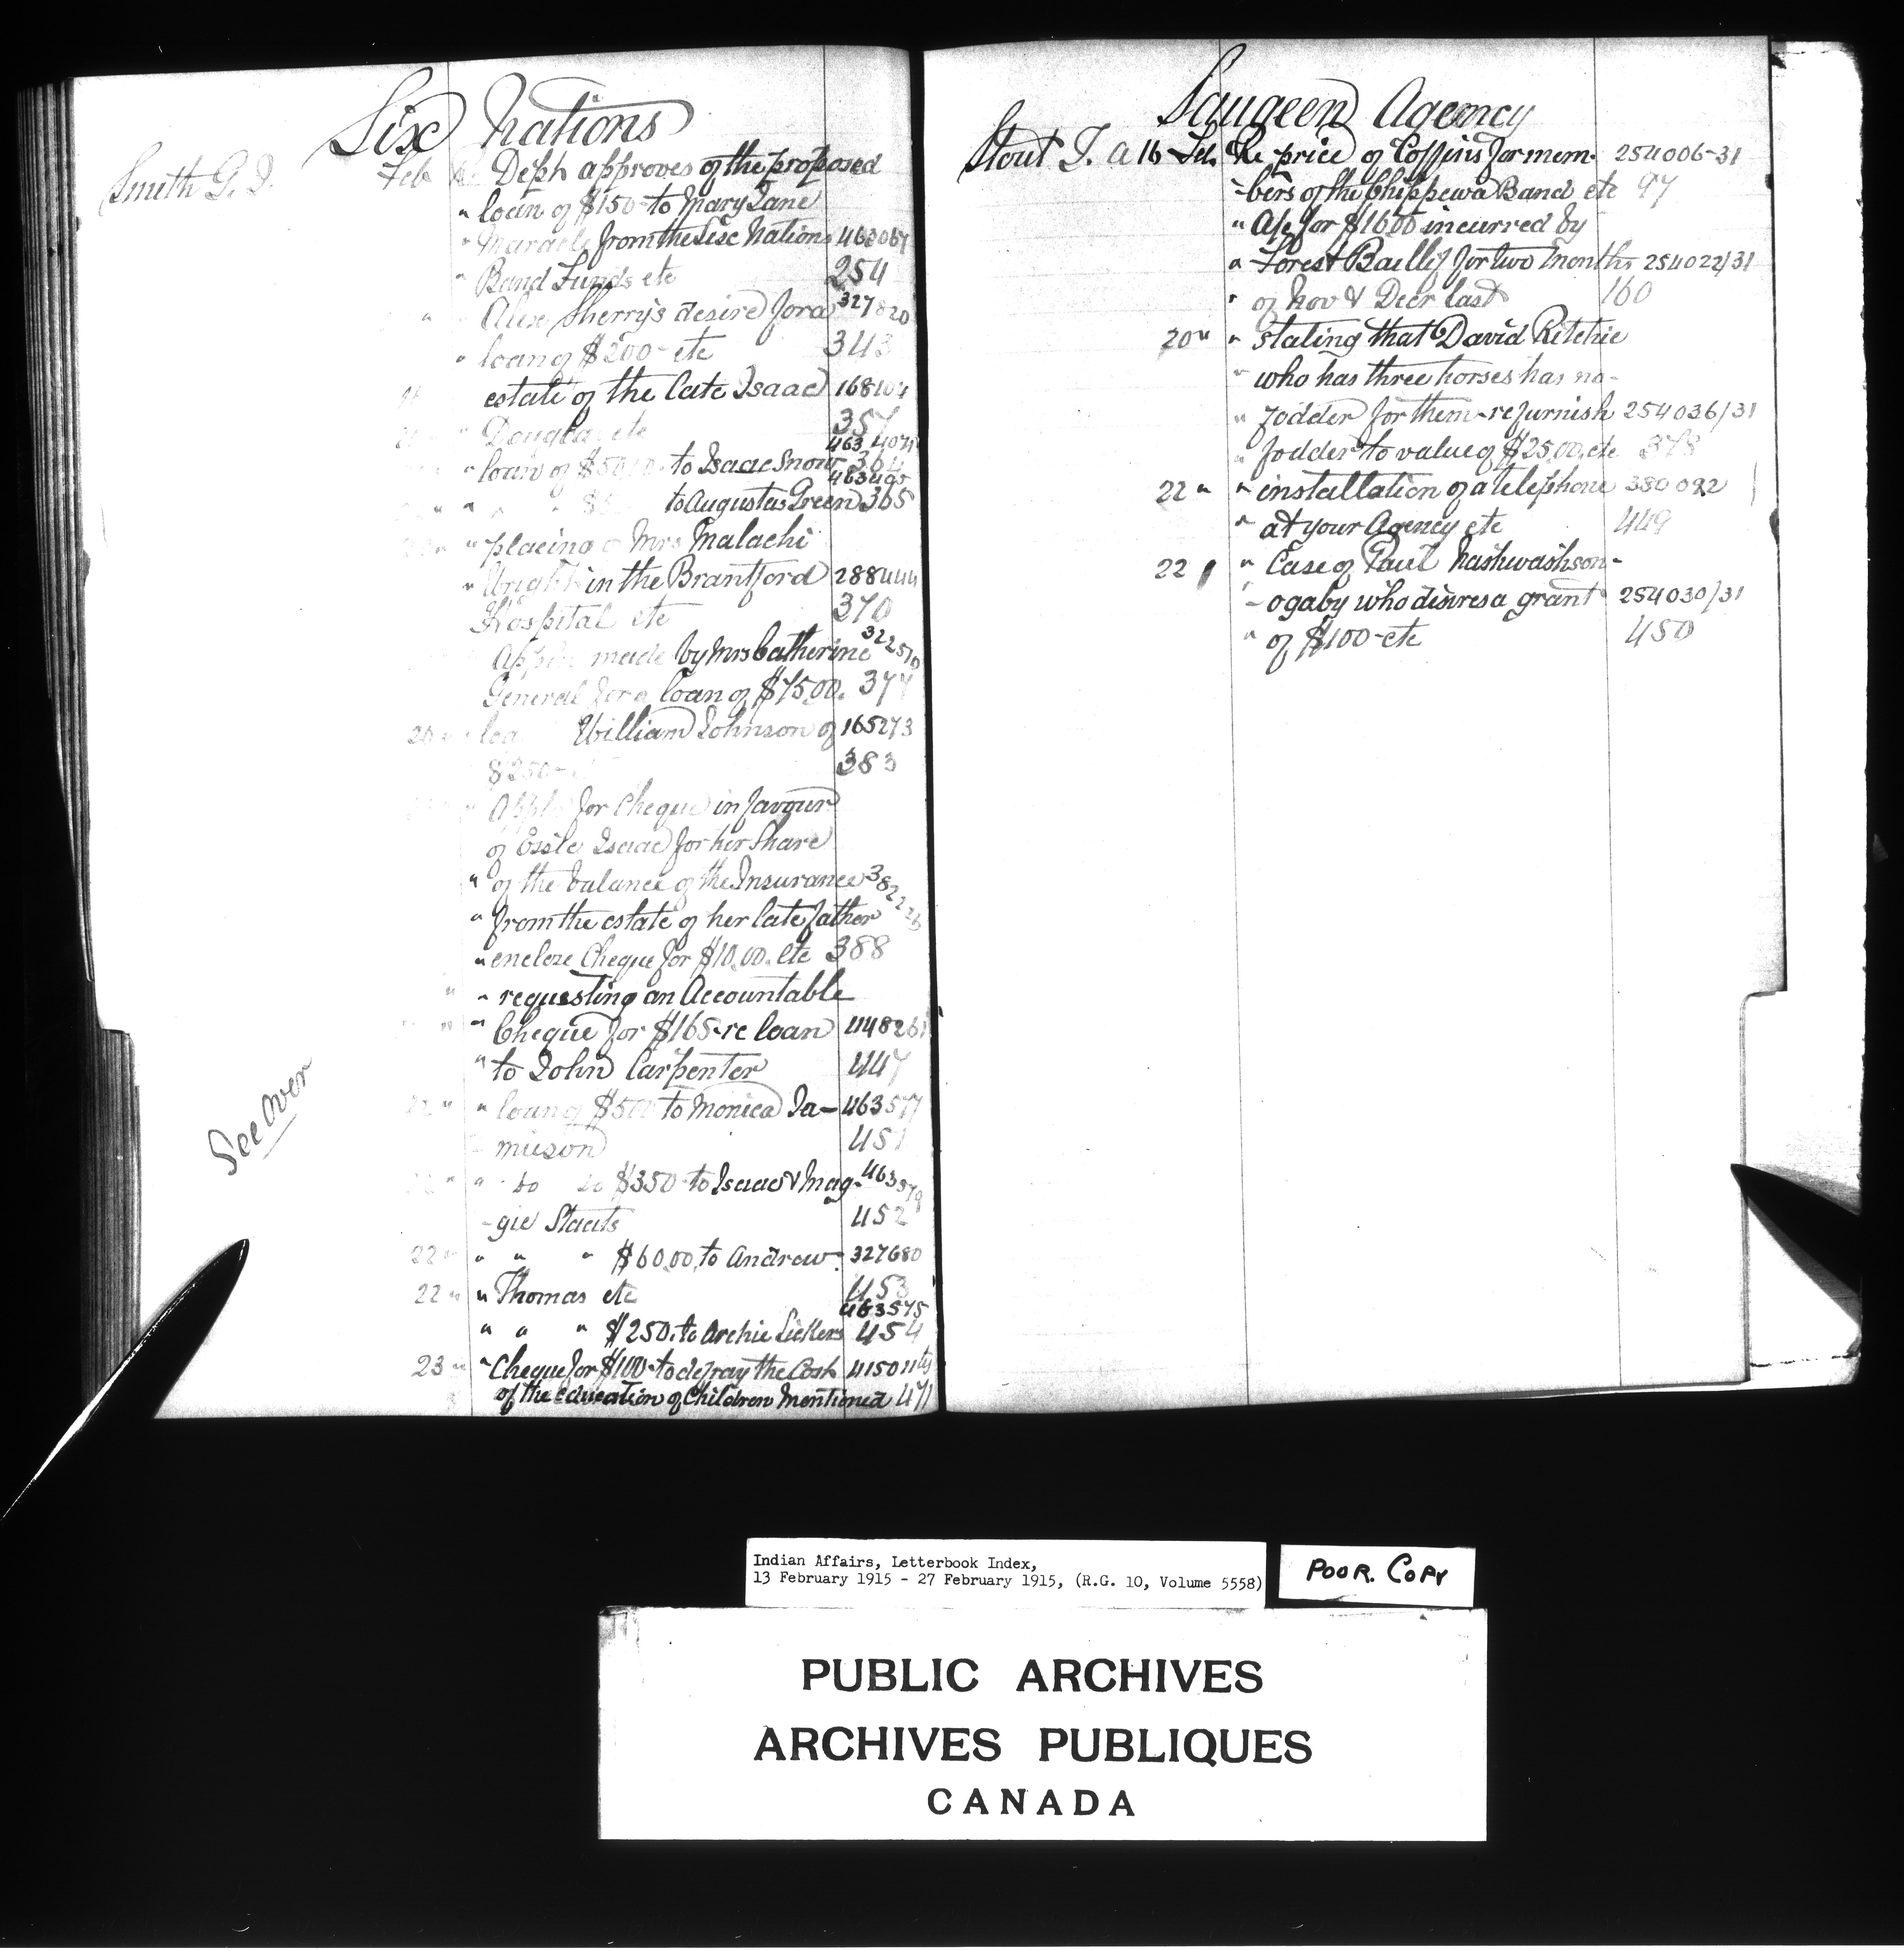 Six Nations
Smith G. J.
Feb Re Dept approves of the proposed
" loan of $150 - to Mary Jane
" Maracle from the Six Nations 463067
" Band Funds etc 254
" Alex Sherry's desire for a 327820
" loan of $200 - etc 343
estate of the late Isaac 168104
" Douglas etc 357
" loan of $50.00. to Isaac Snow 364
" " to Augustus Green 365
" placing Mrs Malachi
" Wright in the Brantford 288444
Hospital etc 370
made by Mrs Catherine 322510
General for a loan of $75.00. 377
William Johnson of 165273
$250 - 383
" Appln for Cheque in favour
of Essie Isaac for her Share
" of the balance of the Insurance
" from the estate of her late father
" enclose Cheque for $10.00. etc 388
" " requesting an Accountable
" Cheque for $165 - re loan
" to John Carpenter 447
" loan of $500 to Monica Ja- 463577
mieson 451
" " do do $350 - to Isaac & Mag- 463579
-gie Staats 452
22 " " " " $60.00. to Andrew - 327680
22 " " Thomas etc 453
463575
" " " $250. to Archie Lickers 454
23 " " Cheque for $100 - to defray the Cost
of the education of Children Mentioned 471
See over
Saugeen Agency
Stout T. A 16 Feb Re price of Coffins for mem- 254006-31
-bers of the Chippewa Band etc 97
" A/c for $16.00 incurred by
" Forest Bailiff for two months 254022/31
" of Nov & Decr last 160
20 " " stating that David Ritchie
" who has three horses has no-
" fodder for them - re furnish 254036/31
" fodder to value of $25.00. etc 378
22 " " installation of a telephone 380092
" at your Agency etc 449
22 " " Case of Paul Nashwashson-
- ogaby who disires a grant 254030/31
" of $100 - etc 450
Indian Affairs, Letterbook Index,
13 February 1915 - 27 February 1915, (R.G. 10, Volume 5558)
POOR. COPY
PUBLIC ARCHIVES
ARCHIVES PUBLIQUES
CANADA